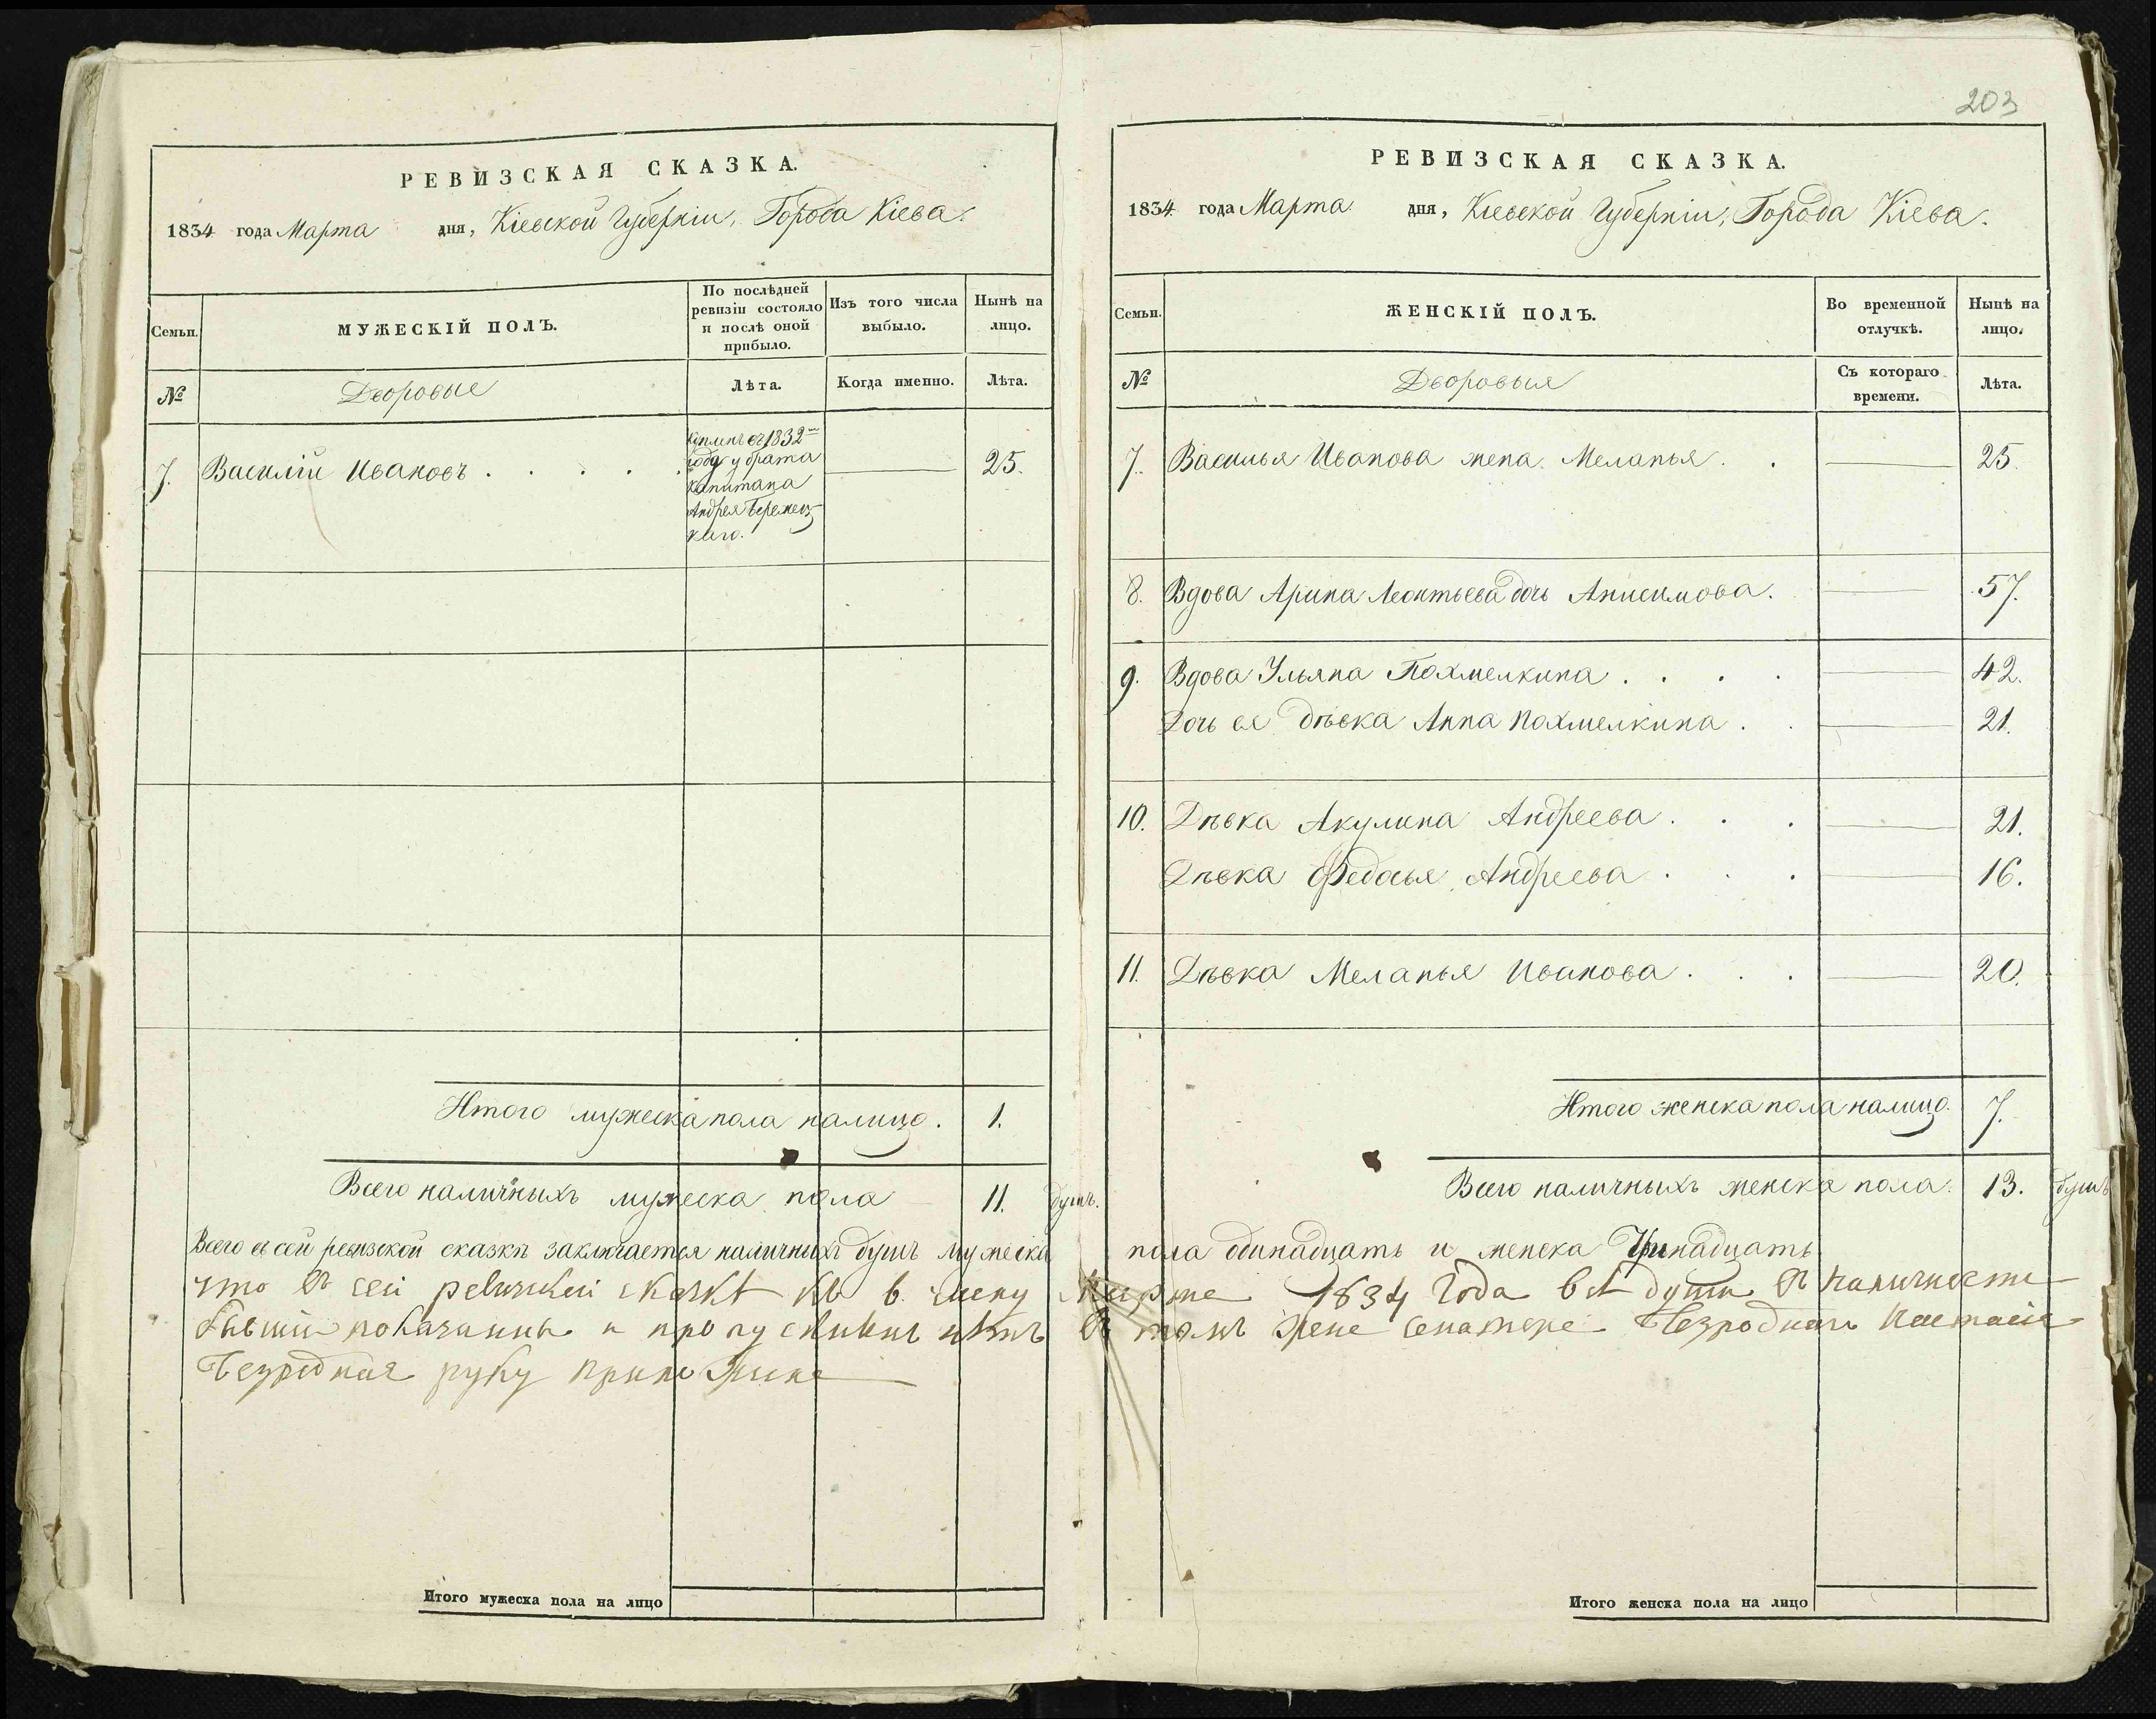 203
РЕВИЗСКАЯ СКАЗКА.
1834 года Марта дня, Кіевской Губерніи, Города Кіева.
Семьи.
МУЖЕСКІЙ ПОЛЪ.
По послѣдней
ревизіи состояло
и послѣ оной
прибыло.
Изъ того числа
выбыло.
Нынѣ на
лицо.
№
Дворовые
Лѣта.
Когда именно.
Лѣта.
7. Василій Ивановъ . . . . .
купленъ въ 1832м
году у брата
капитана
Андрея
каго.
25.
Итого мужеска пола налицо. 1.
Всего наличныхъ мужеска пола 11. душъ.
РЕВИЗСКАЯ СКАЗКА.
1834 года Марта дня, Кіевской Губерніи, Города Кіева.
Семьи.
ЖЕНСКІЙ ПОЛЪ.
Во временной
отлучкѣ.
Нынѣ на
лицо.
№
Дворовыя
Съ котораго
времени.
Лѣта.
7. Василья Иванова жена Меланья . . 25.
8. Вдова Арина Леонтьева дочь Анисимова. 57.
9. Вдова Ульяна Похмелкина . . . . 42.
Дочь ея дѣвка Анна Похмелкина . . 21.
10. Дѣвка Акулина Андреева . . . 21.
Дѣвка Федосья Андреева . . . 16.
11. Дѣвка Меланья Иванова . . . 20.
Итого женска пола налицо. 7.
Всего наличныхъ женска пола. 13. душъ
Всего въ сей ревизской сказкѣ заключается наличныхъ душъ мужеска пола одинадцать и женска Тринадцать
что въ сей ревизской сказке къ в. числу Марта 1834 года всѣ души въ наличности
бывши показанны и пропускныхъ нѣтъ въ томъ Безроднаго
Безродная руку приложила
Итого мужеска пола на лицо
Итого женска пола на лицо